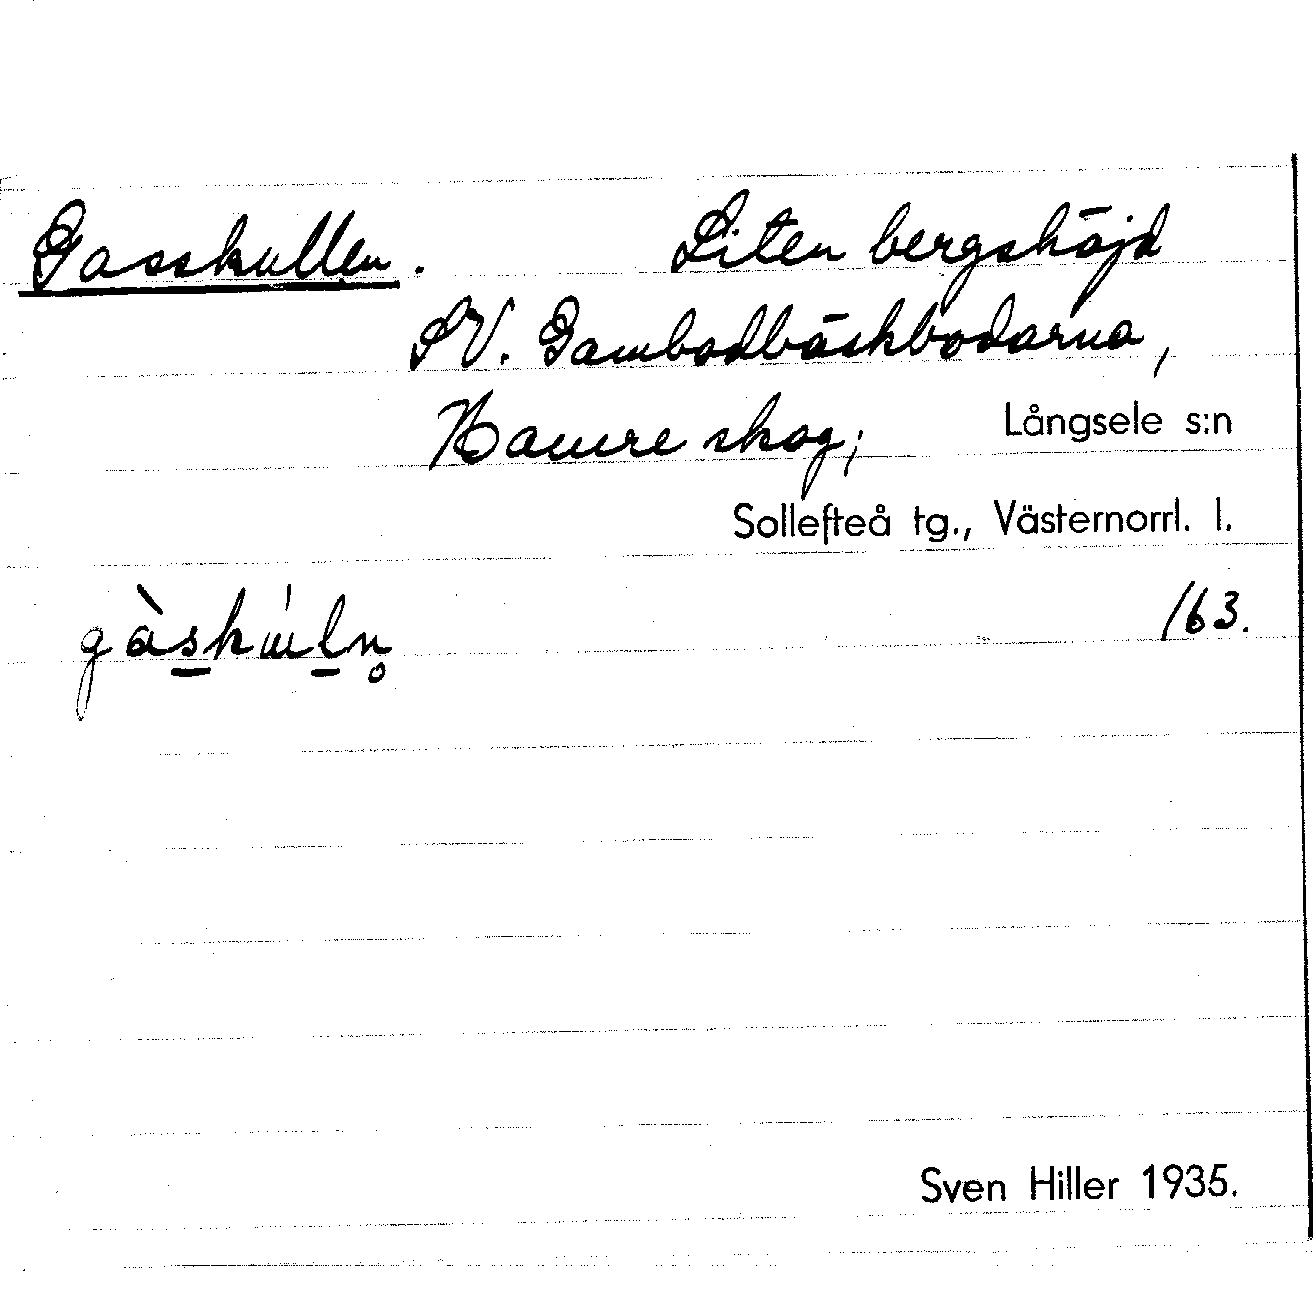 Gasskullen. Liten bergshöjd
SV. Gambodbäckbodarna,
Hamre skog; Långsele s:n
Sollefteå tg., Västernorrl. l.
gàskɯ́ln̥ 163.
Sven Hiller 1935.